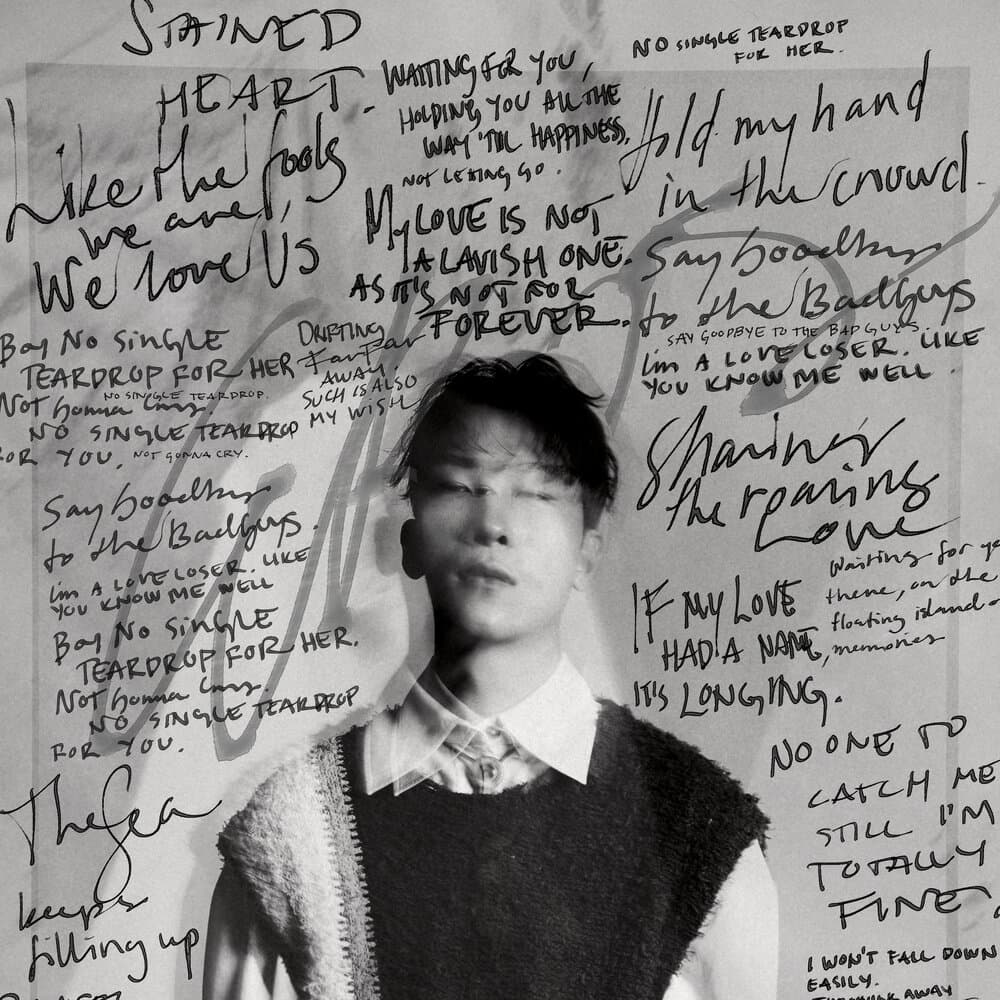 STAINED
HEART.
Like the fools
we are,
We love Us
WAITING FOR YOU,
HOLDING YOU ALL THE
WAY 'TIL HAPPINESS,
NOT LETTING GO.
MY LOVE IS NOT
A LAVISH ONE.
AS IT'S NOT FOR
FOREVER.
NO SINGLE TEARDROP
FOR HER.
Hold my hand
in the crowd.
Say Goodbye
to the BadGuys
SAY GOODBYE TO THE BAD GUYS.
I'm A LOVE LOSER. LIKE
YOU KNOW ME WELL.
Boy No SINGLE
TEARDROP FOR HER
NO SINGLE TEARDROP.
Not Gonna Cry.
NO SINGLE TEARDROP
FOR YOU. NOT GONNA CRY.
DRIFTING
Far Far
AWAY.
SUCH IS ALSO
MY WISH
Say Goodbye
to the BadGuys.
I'm A LOVE LOSER. LIKE
YOU KNOW ME WELL
Boy No SINGLE
TEARDROP FOR HER.
Not Gonna Cry.
NO SINGLE TEARDROP
FOR YOU.
The Sea
keeps
filling up
Sharing
the roaring
Love
IF MY LOVE
HAD A NAME,
IT'S LONGING.
Waiting for
there, on the
floating island
memories
NO ONE TO
CATCH ME
STILL I'M
TOTALLY
FINE
I WON'T FALL DOWN
EASILY.
AWAY